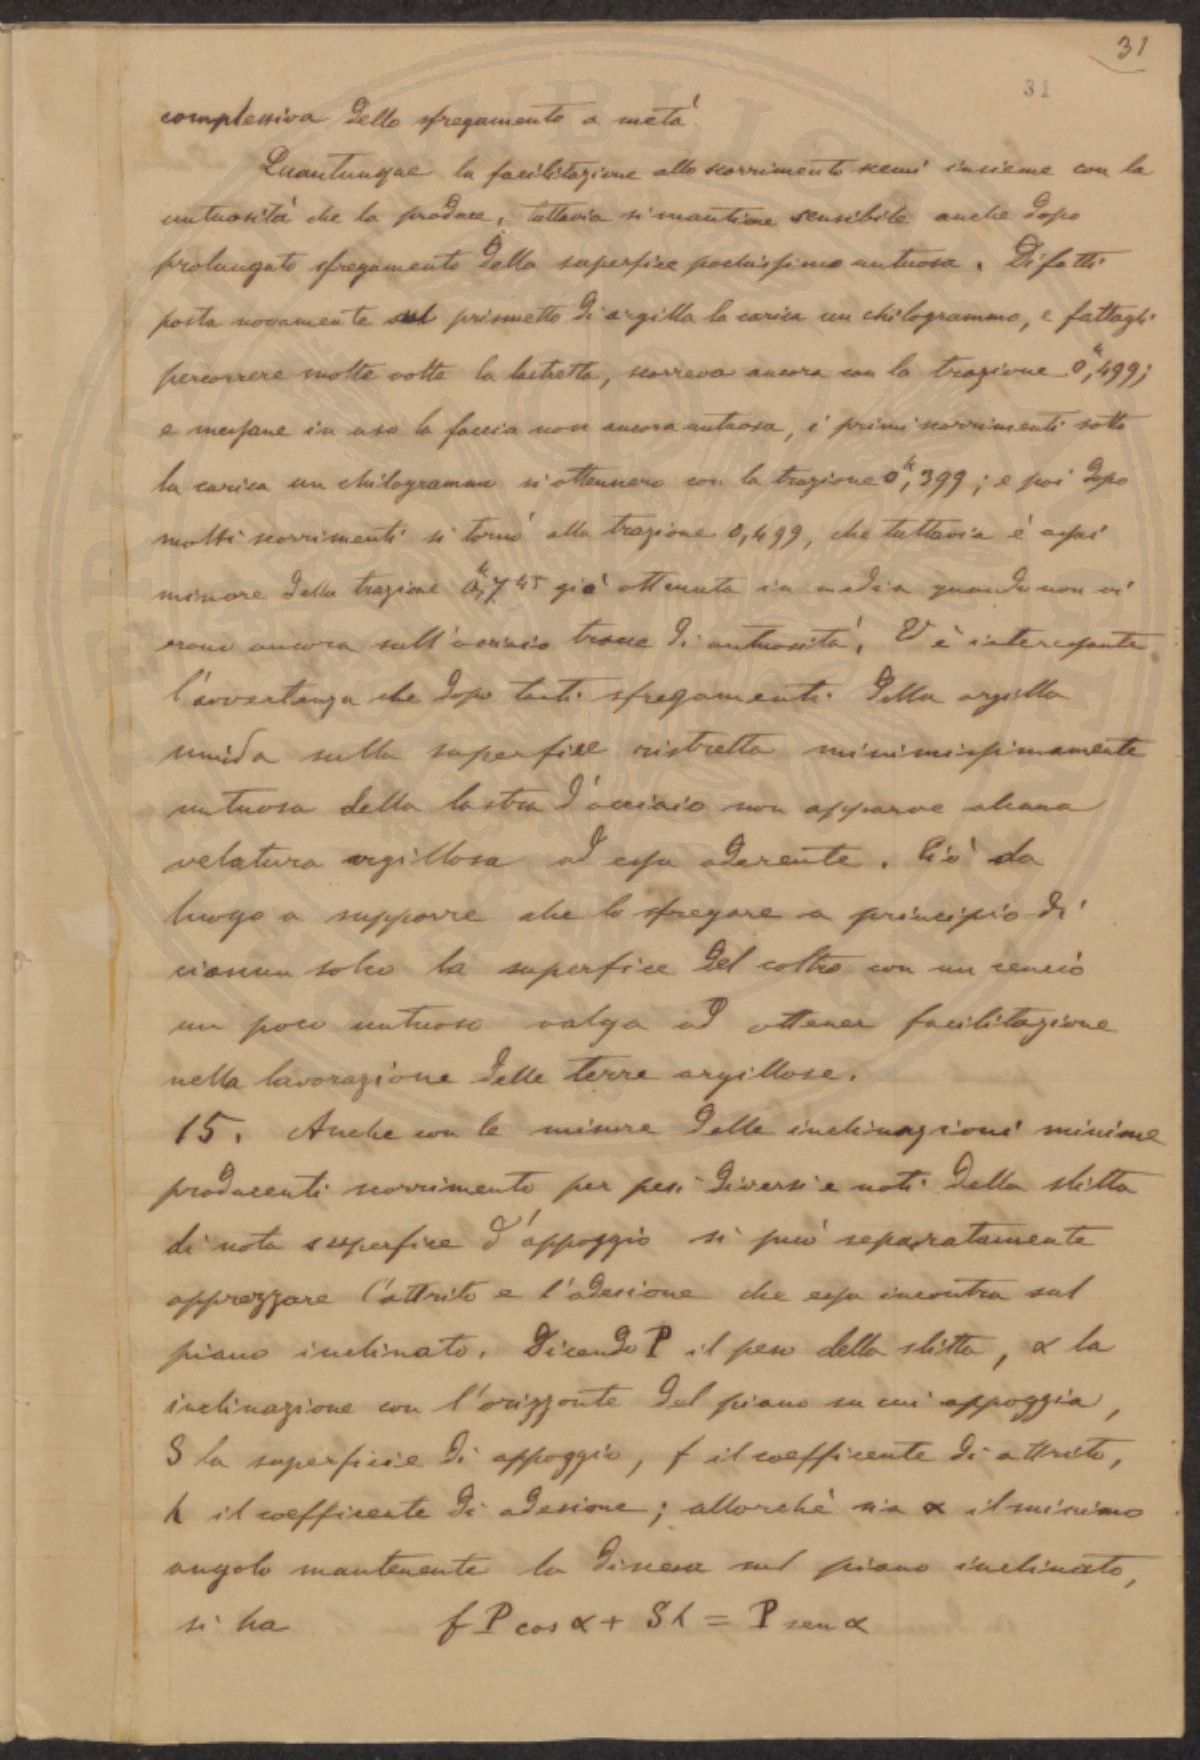 31
31
complessiva dello sfregamento a metà.
Quantunque la facilitazione allo scorrimento scemi insieme con la
untuosità che la produce, tuttavia si mantiene sensibile anche dopo
prolungato sfregamento della superfice pochissimo untuosa. Difatti
posta novamente sul prismetto di argilla la carica un chilogrammo, e fattagli
percorrere molte volte la lastretta, scorreva ancora con la trazione 0,ᵏ499;
e messane in uso la faccia non ancora untuosa, i primi scorrimenti sotto
la carica un chilogrammo si ottennero con la trazione 0,ᵏ399; e poi dopo
molti scorrimenti si tornò alla trazione 0,499, che tuttavia è assai
minore della trazione 0,ᵏ745 già ottenuta in media quando non vi
erano ancora sull'acciaio tracce di untuosità. V'è interessante
l'avvertenza che dopo tanti sfregamenti della argilla
umida sulla superfice ristretta minimissimamente
untuosa della lastra d'acciaio non apparve alcuna
velatura argillosa ad essa aderente. Ciò da
luogo a supporre che lo sfregare a principio di
ciascun solco la superfice del coltro con un cencio
un poco untuoso valga ad ottener facilitazione
nella lavorazione delle terre argillose.
15. Anche con le misure delle inclinazioni minime
producenti scorrimento per pesi diversi e noti della slitta
di nota superfice d'appoggio si può separatamente
apprezzare l'attrito e l'adesione che essa incontra sul
piano inclinato. Dicendo P il peso della slitta, α la
inclinazione con l'orizzonte del piano su cui appoggia,
S la superficie di appoggio, f il coefficente di attrito,
h il coefficente di adesione; allorchè sia α il minimo
angolo mantenente la discesa sul piano inclinato,
si ha f P cos α + S h = P sen α